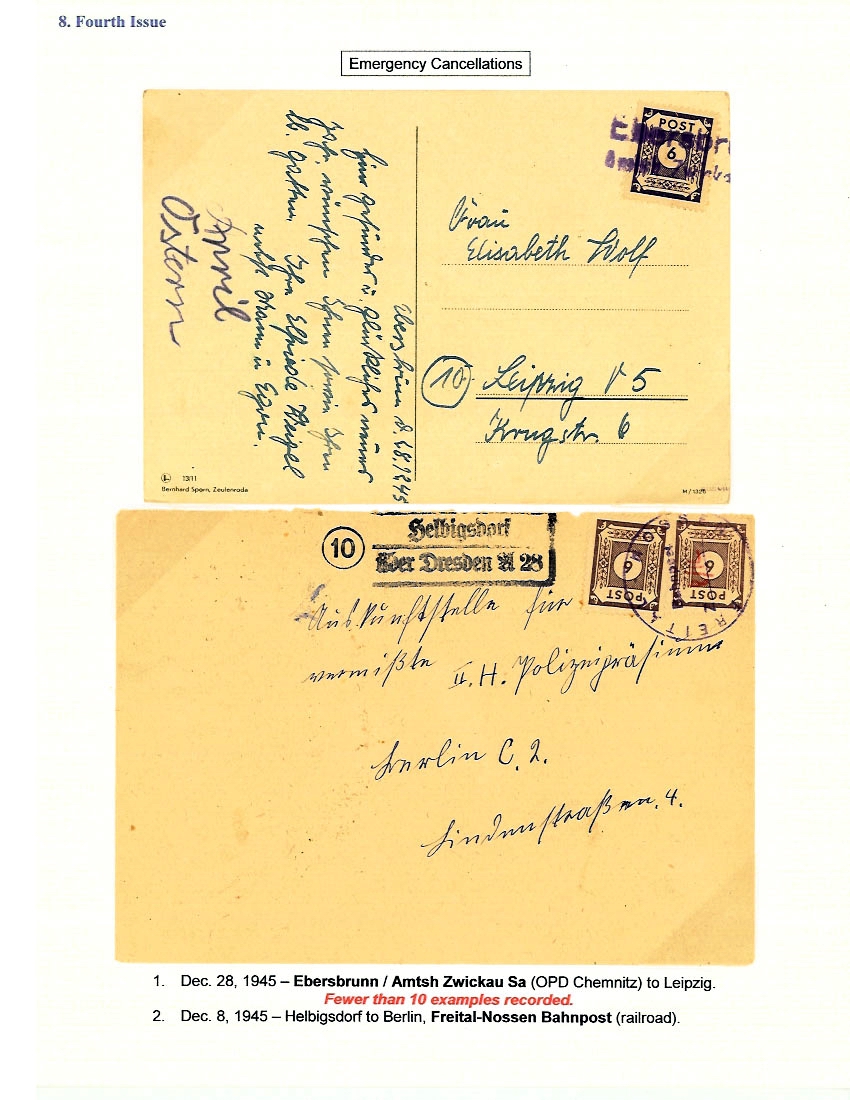 8. Fourth Issue
Emergency Cancellations
POST
6
Ebersbru
Frau
Elisabeth Wolf
10 Leipzig V 5
Krugstr. 6
Ebersbrunn d. 28.12.45
Ihnen
Ihre Elfriede Weigel
nebst Mann u. Eltern.
April
Ostern
L 13/11
Bernhard Sporn, Zeulenroda
M/1326
10
Helbigsdorf
über Dresden A 28
6
POST
6
POST
Auskunftstelle für
vermißte II. H. Polizeipräsium
Berlin C. 2.
Lindenstraßen. 4.
1. Dec. 28, 1945 – Ebersbrunn / Amtsh Zwickau Sa (OPD Chemnitz) to Leipzig.
Fewer than 10 examples recorded.
2. Dec. 8, 1945 – Helbigsdorf to Berlin, Freital-Nossen Bahnpost (railroad).